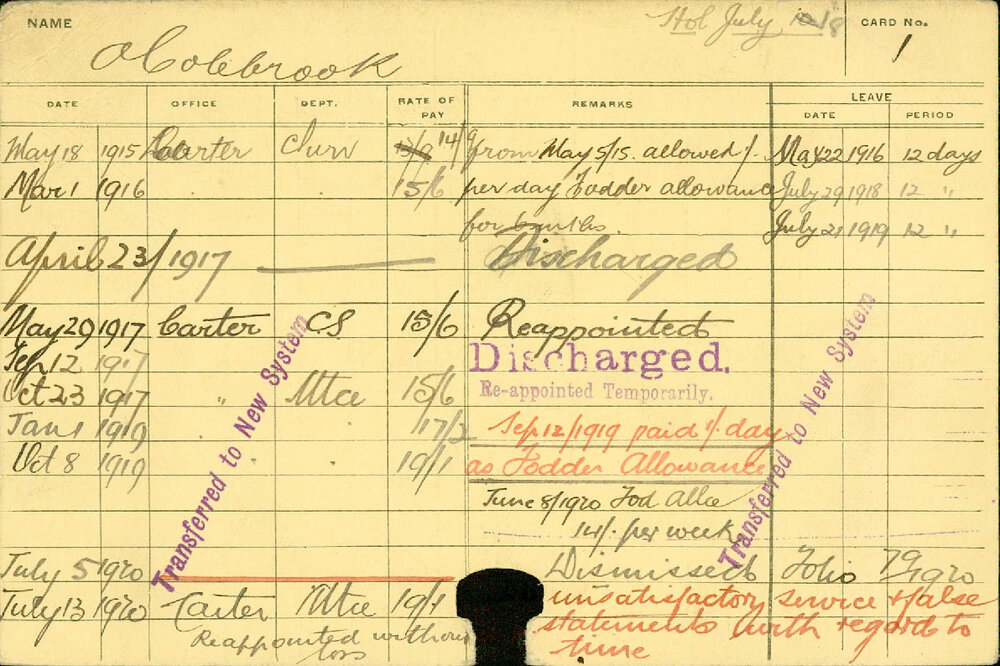 NAME
Hol July 10/18
CARD No.
1
O Colebrook
DATE OFFICE DEPT. RATE OF PAY REMARKS LEAVE
DATE PERIOD
May 18 1915 Carter 14/9 from May 5/15. allowed 1/- May 22 1916 12 days
Mar 1 1916 15/6 per day Fodder allowance July 29 1918 12 "
for 6 mths. July 21 1919 12 "
April 23/1917 Discharged
May 29 1917 Carter CS 15/6 Reappointed
Sep 12 1917 Discharged.
Oct 23 1917 " Mtce 15/6 Re-appointed Temporarily.
Jan 1 1919 17/2 Sep 12/1919 paid 1/ day
Oct 8 1919 19/1 as Fodder Allowance
June 8/1920 Fod Allce
14/- per week
Transferred to New System
Transferred to New System
July 5 1920 Dismissed Folio 79/1920
July 13 1920 Carter Mtce 19/1 unsatisfactory service & false
Reappointed without statements with regard to
loss time